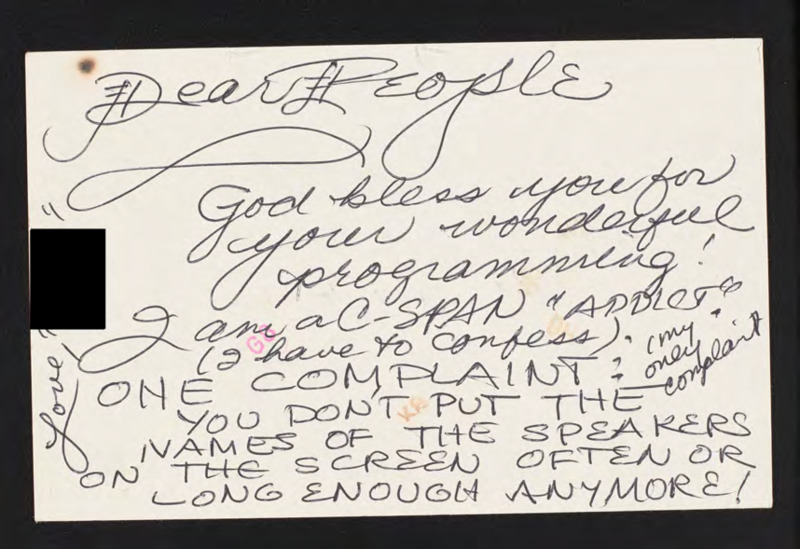 Dear People
God bless you for
your wonderful
programming!
I am a C-SPAN "ADDICT"
(I have to confess).
ONE COMPLAINT:
(my
only
complaint
YOU DON'T PUT THE
NAMES OF THE SPEAKERS
ON THE SCREEN OFTEN OR
LONG ENOUGH ANYMORE!
Love,
"
"
GG
KR